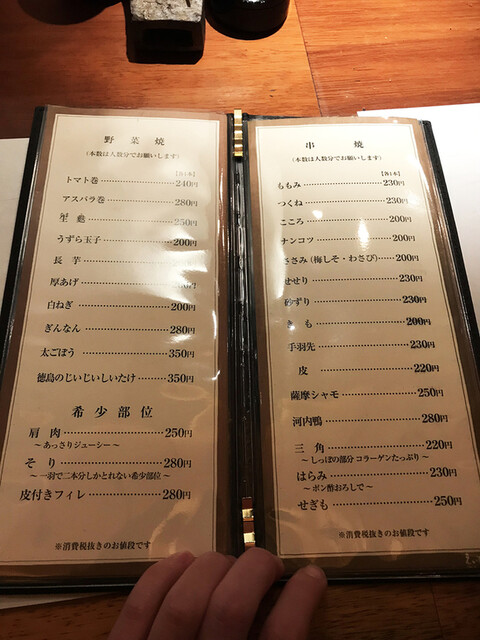 野菜焼
(本数は人数分でお願いします)
【各1本】
トマト巻 240円
アスパラ巻 280円
250円
うずら玉子 200円
長芋 円
厚あげ 円
白ねぎ 200円
ぎんなん 280円
太ごぼう 350円
徳島のじいじいしいたけ 350円
希少部位
肩肉 250円
～あっさりジューシー～
そり 280円
～一羽で二本分しかとれない希少部位～
皮付きフィレ 280円
※消費税抜きのお値段です
串焼
(本数は人数分でお願いします)
【各1本】
ももみ 230円
つくね 230円
こころ 200円
ナンコツ 200円
ささみ(梅しそ・わさび) 200円
せせり 230円
砂ずり 230円
きも 200円
手羽先 230円
皮 220円
薩摩シャモ 250円
河内鴨 280円
三角 220円
～しっぽの部分 コラーゲンたっぷり～
はらみ 230円
～ポン酢おろしで～
せぎも 250円
※消費税抜きのお値段です